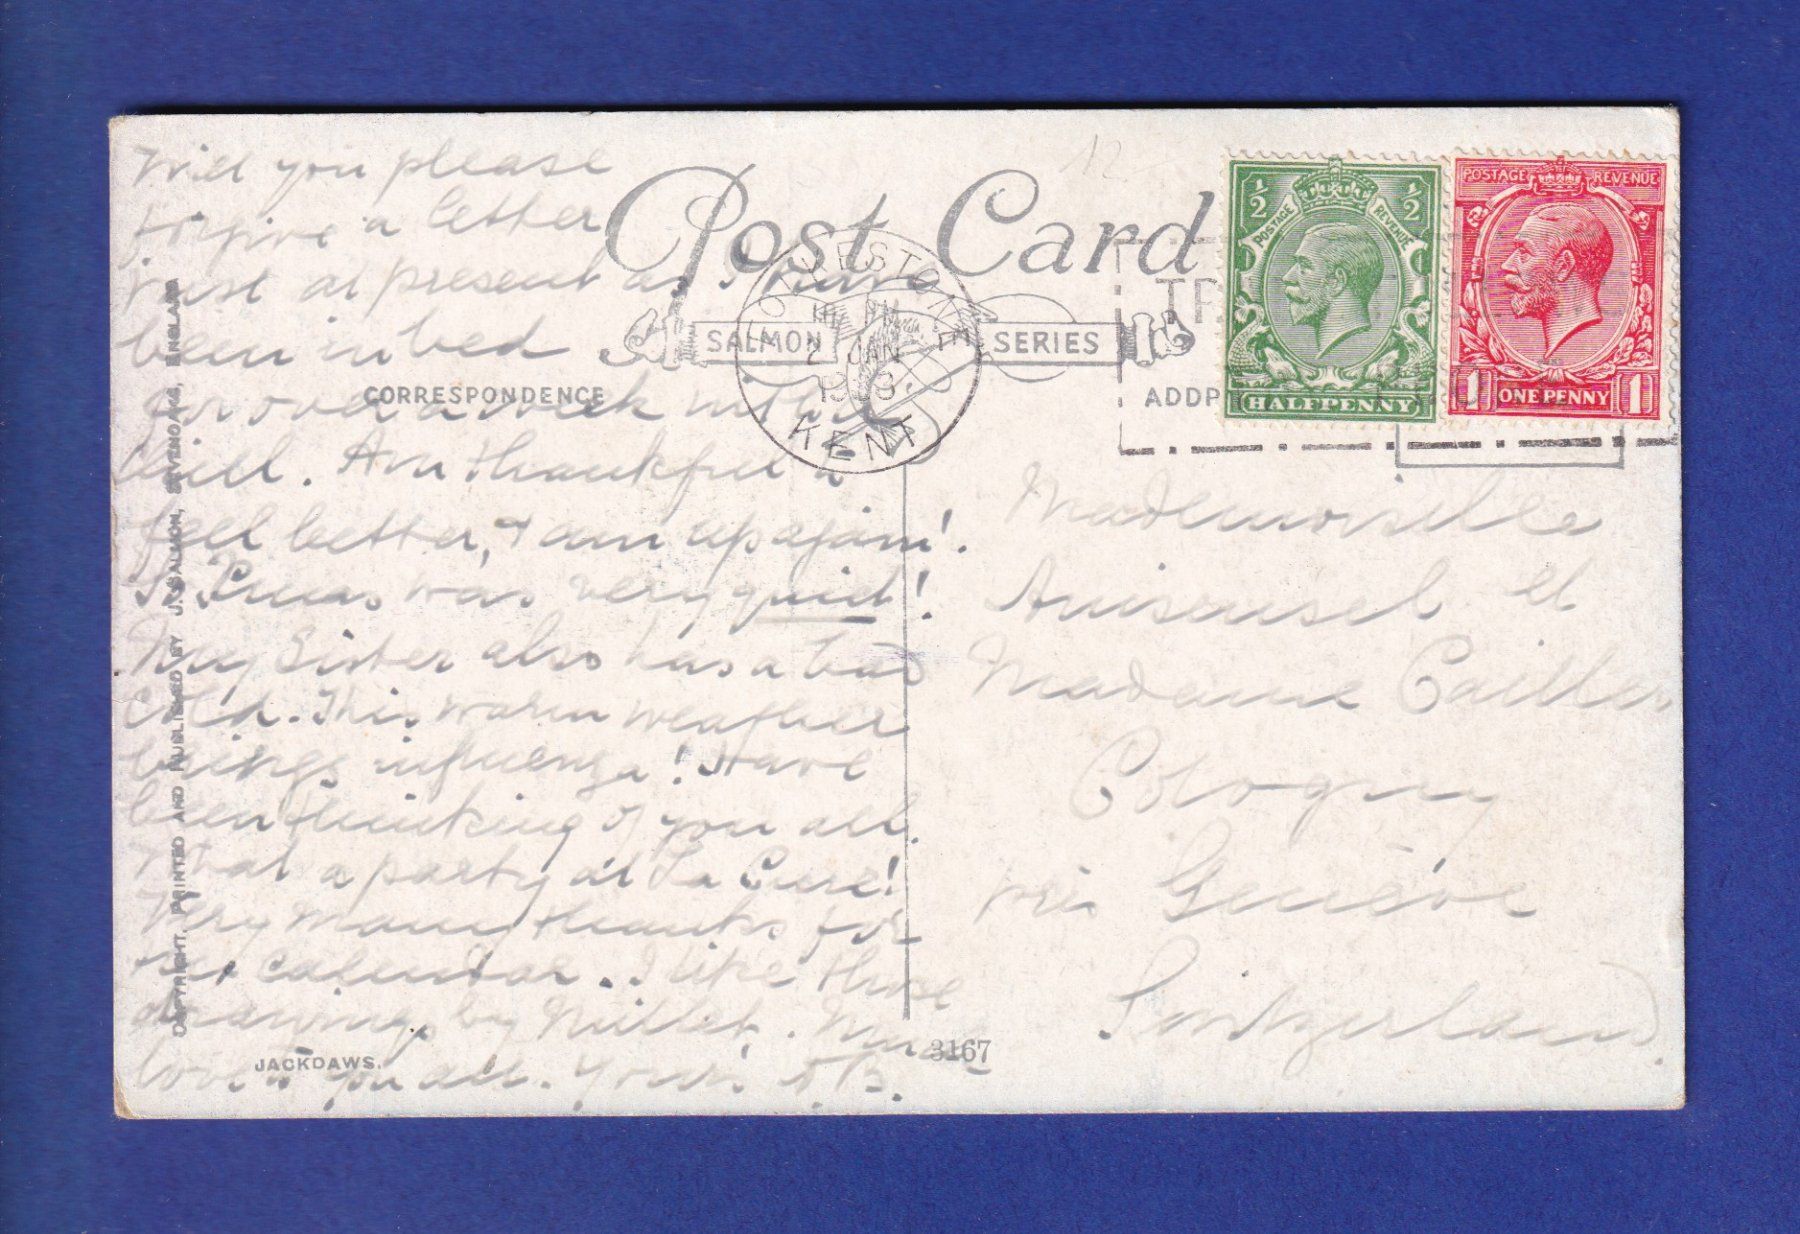 Will you please
forgive a letter
just at present as I have
been in bed
for over a week with
chill. Am thankful to
feel better, & am up again!
Xmas was very quiet!
My Sister also has a bad
cold. This warm weather
brings influenza! Have
been thinking of you all.
What a party at La Cure!
Very many thanks for
the calendar. I like those
drawings by Millet. Much
love to you all. Yours
Post Card
SALMON SERIES
CORRESPONDENCE
FOLKESTONE
JAN
KENT
ADDR
½ ½
POSTAGE REVENUE
HALFPENNY
POSTAGE REVENUE
1 ONE PENNY 1
Mademoiselle
et
Madame Cailler
Cologny
près Genève
Switzerland.
COPYRIGHT, PRINTED AND PUBLISHED BY J. SALMON, SEVENOAKS, ENGLAND
JACKDAWS.
3167
12